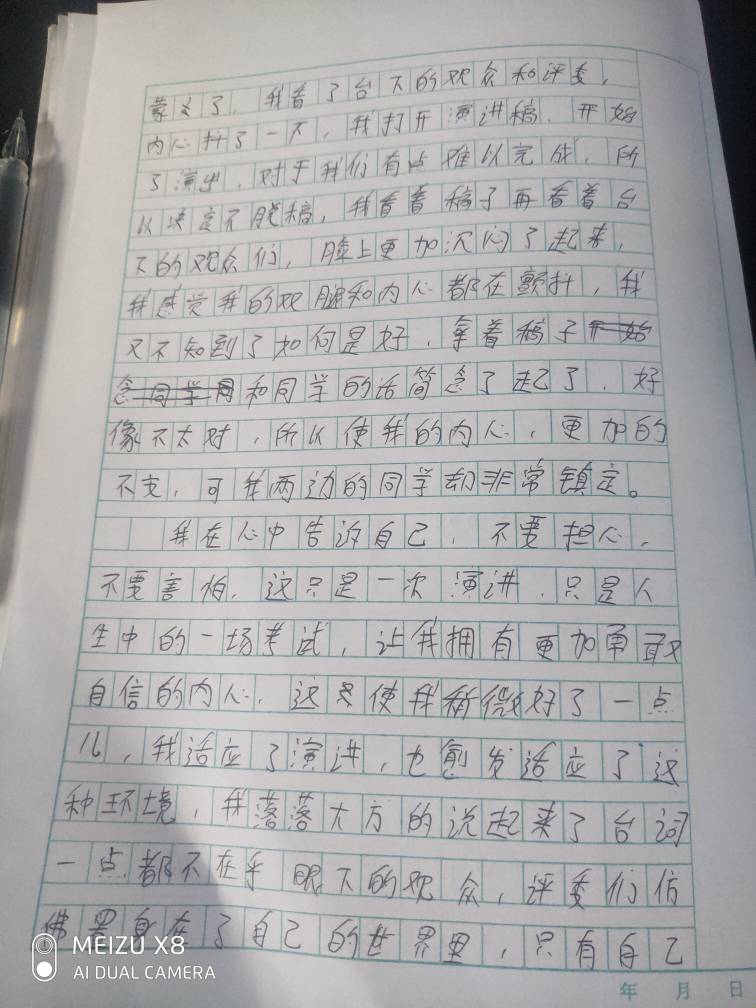 了，我看了台下的观众和评委，
内心抖了一下，我打开演讲稿，开始
了演出，对于我们有点难以完成，所
以决定不脱稿，我看着稿子再看着台
下的观众们，脸上更加沉闷了起来，
我感觉我的双腿和内心都在颤抖，我
又不知到了如何是好，拿着稿子开始
念同学用和同学的话简念了起了，好
像不太对，所以使我的内心，更加的
不支，可我两边的同学却非常镇定。
我在心中告诉自己，不要担心，
不要害怕，这只是一次演讲，只是人
生中的一场考试，让我拥有更加勇敢
自信的内心，这才使我稍微好了一点
儿，我适应了演讲，也愈发适应了这
种环境，我落落大方的说起来了台词
一点都不在乎眼下的观众，评委们仿
佛置身在了自己的世界里，只有自己
年 月 日
MEIZU X8
AI DUAL CAMERA